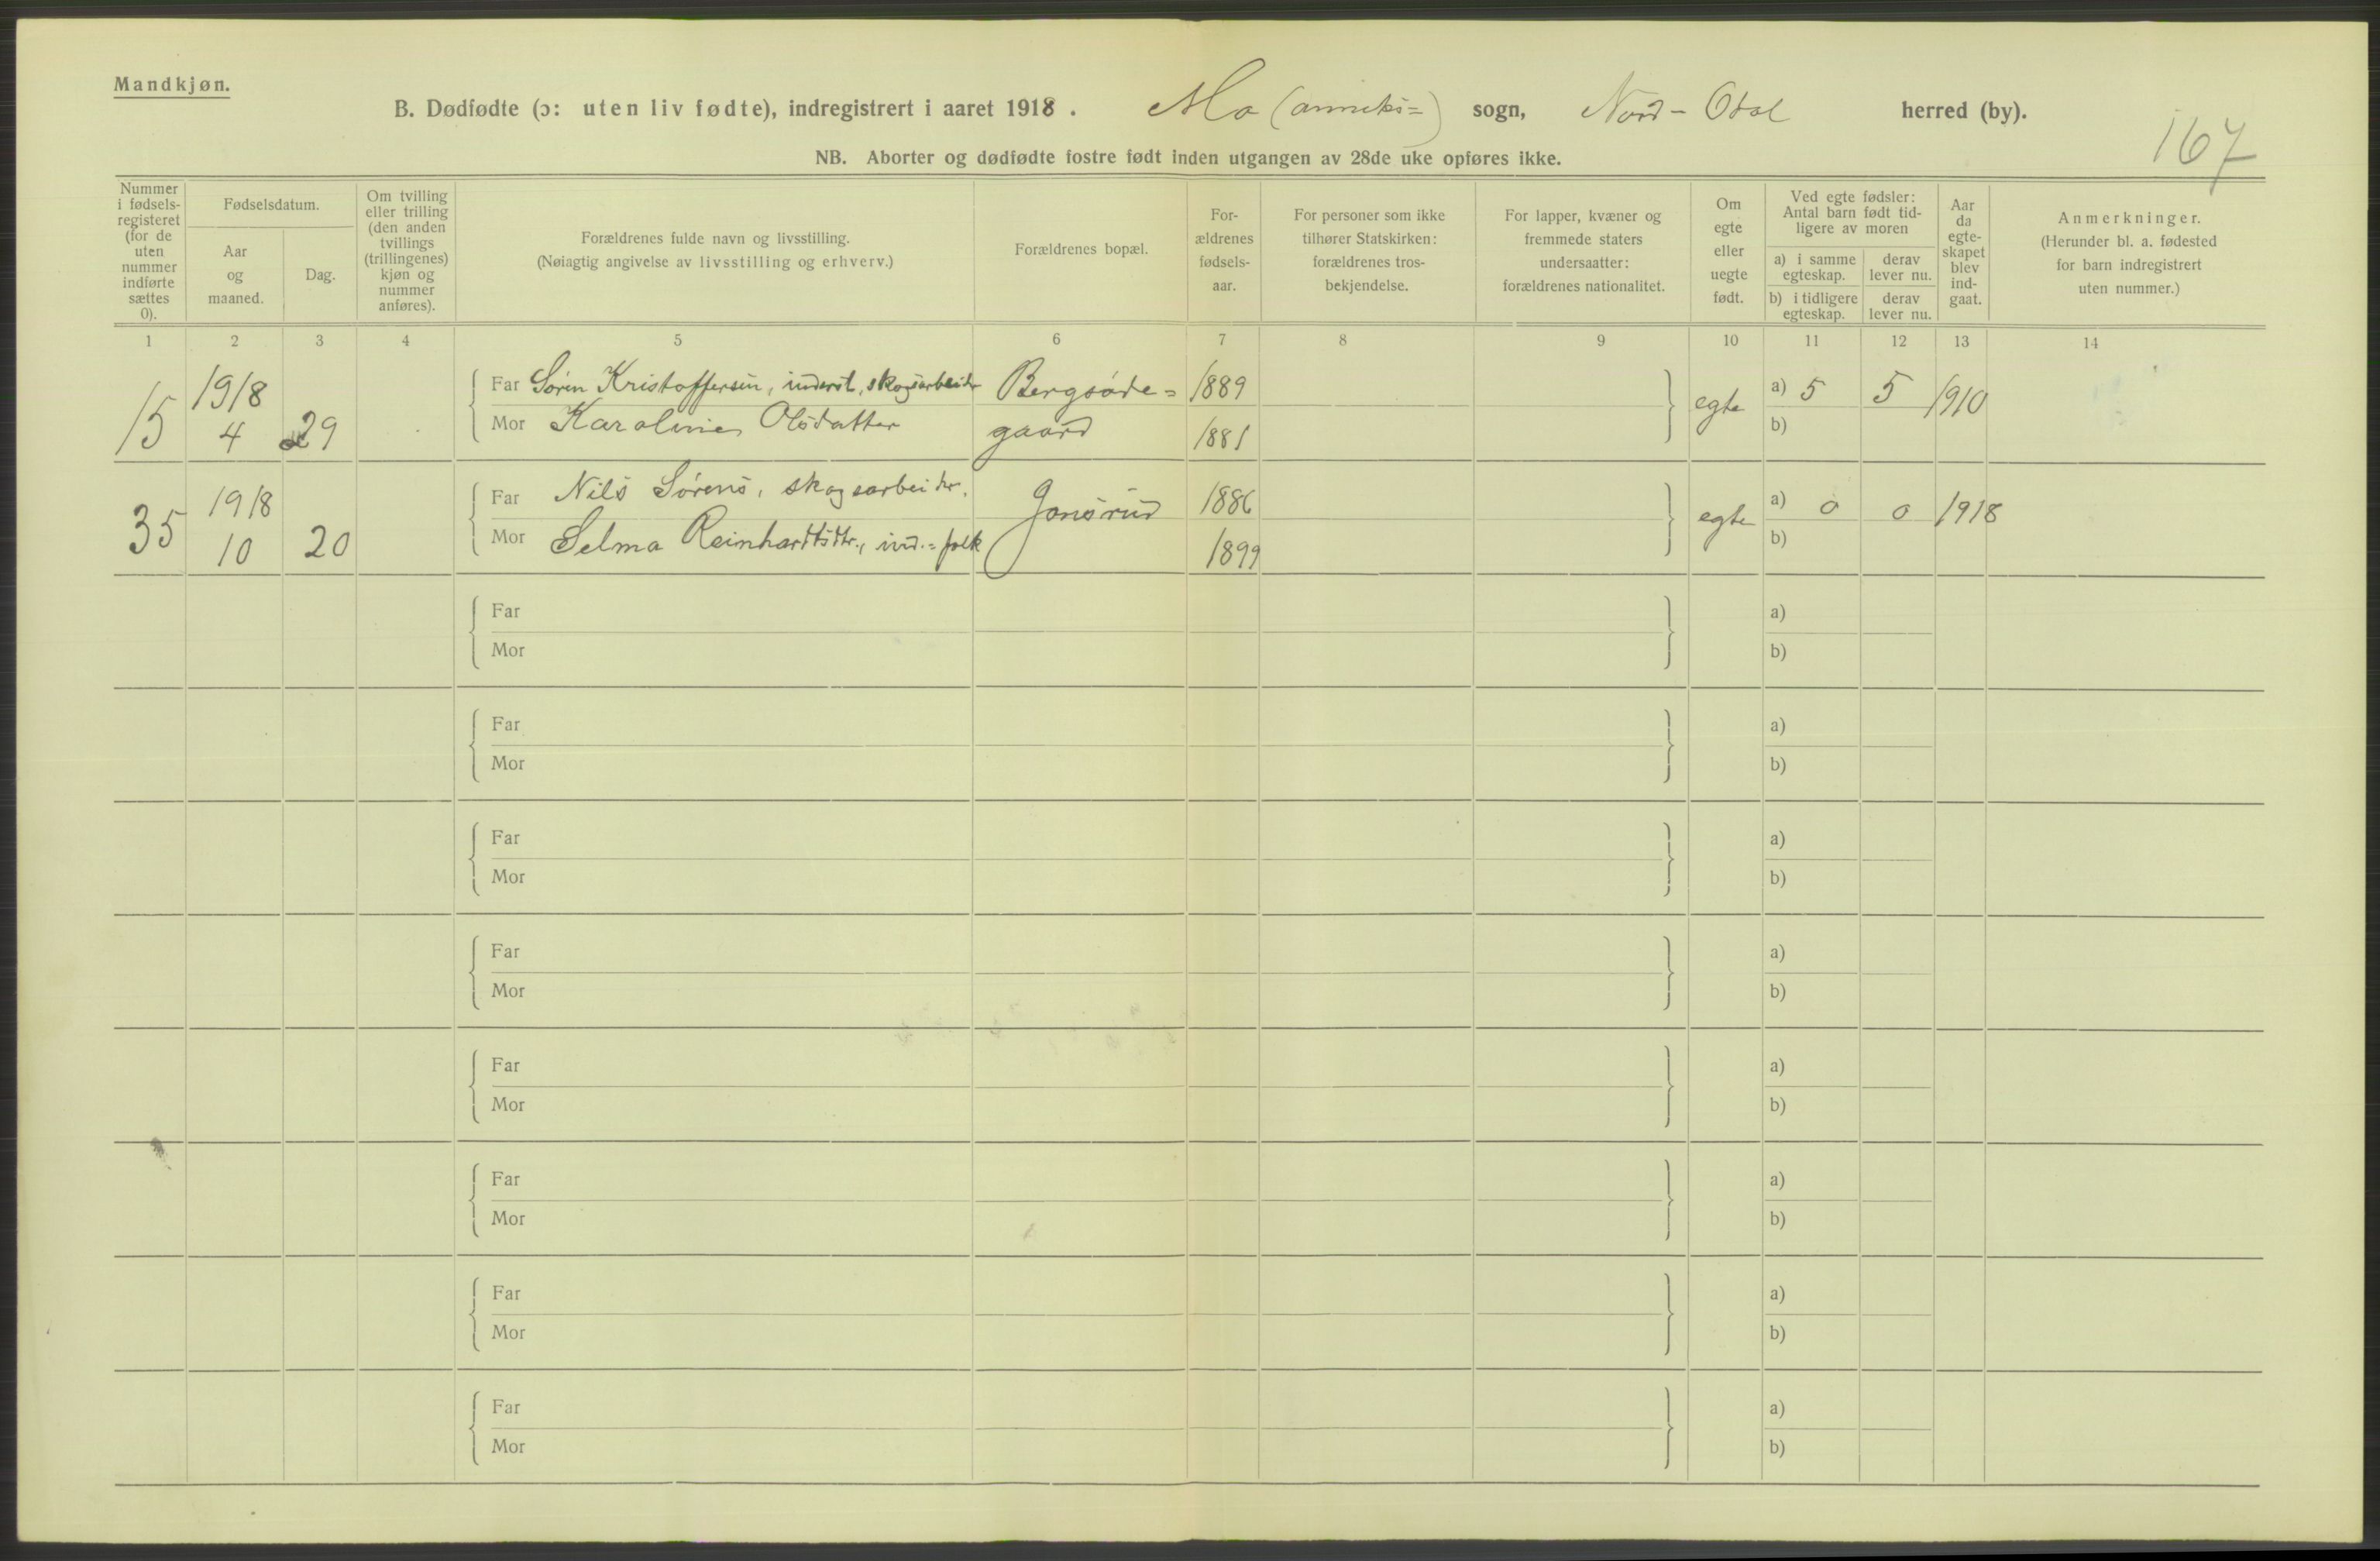 Mandkjøn.
B. Dødfødte (ɔ: uten liv fødte), indregistrert i aaret 1918. Mo (anneks=) sogn, Nord-Odal herred (by).
167
NB. Aborter og dødfødte fostre født inden utgangen av 28de uke opføres ikke.
Nummer i fødsels-registeret (for de uten nummer indførte sættes 0).
Fødselsdatum.
Aar og maaned.
Dag.
Om tvilling eller trilling (den anden tvillings (trillingenes) kjøn og nummer anføres).
Forældrenes fulde navn og livsstilling.
(Nøiagtig angivelse av livsstilling og erhverv.)
Forældrenes bopæl.
For-ældrenes fødsels-aar.
For personer som ikke tilhører Statskirken: forældrenes tros-bekjendelse.
For lapper, kvæner og fremmede staters undersaatter: forældrenes nationalitet.
Om egte eller uegte født.
Ved egte fødsler: Antal barn født tid-ligere av moren
a) i samme egteskap.
derav lever nu.
b) i tidligere egteskap.
derav lever nu.
Aar da egte-skapet blev ind-gaat.
Anmerkninger.
(Herunder bl. a. fødested for barn indregistrert uten nummer.)
1 2 3 4 5 6 7 8 9 10 11 12 13 14
15 1918 4 29
Far Søren Kristoffersen, inderst, skogsarbeider Bergsøde= 1889
Mor Karoline Olsdatter gaard 1881
egte a) 5 5 1910
b)
35 1918 10 20
Far Nils Sørens, skogsarbeider. Jonsrud 1886
Mor Selma Reinhardtsdtr., ind.=folk 1899
egte a) 0 0 1918
b)
Far a)
Mor b)
Far a)
Mor b)
Far a)
Mor b)
Far a)
Mor b)
Far a)
Mor b)
Far a)
Mor b)
Far a)
Mor b)
Far a)
Mor b)